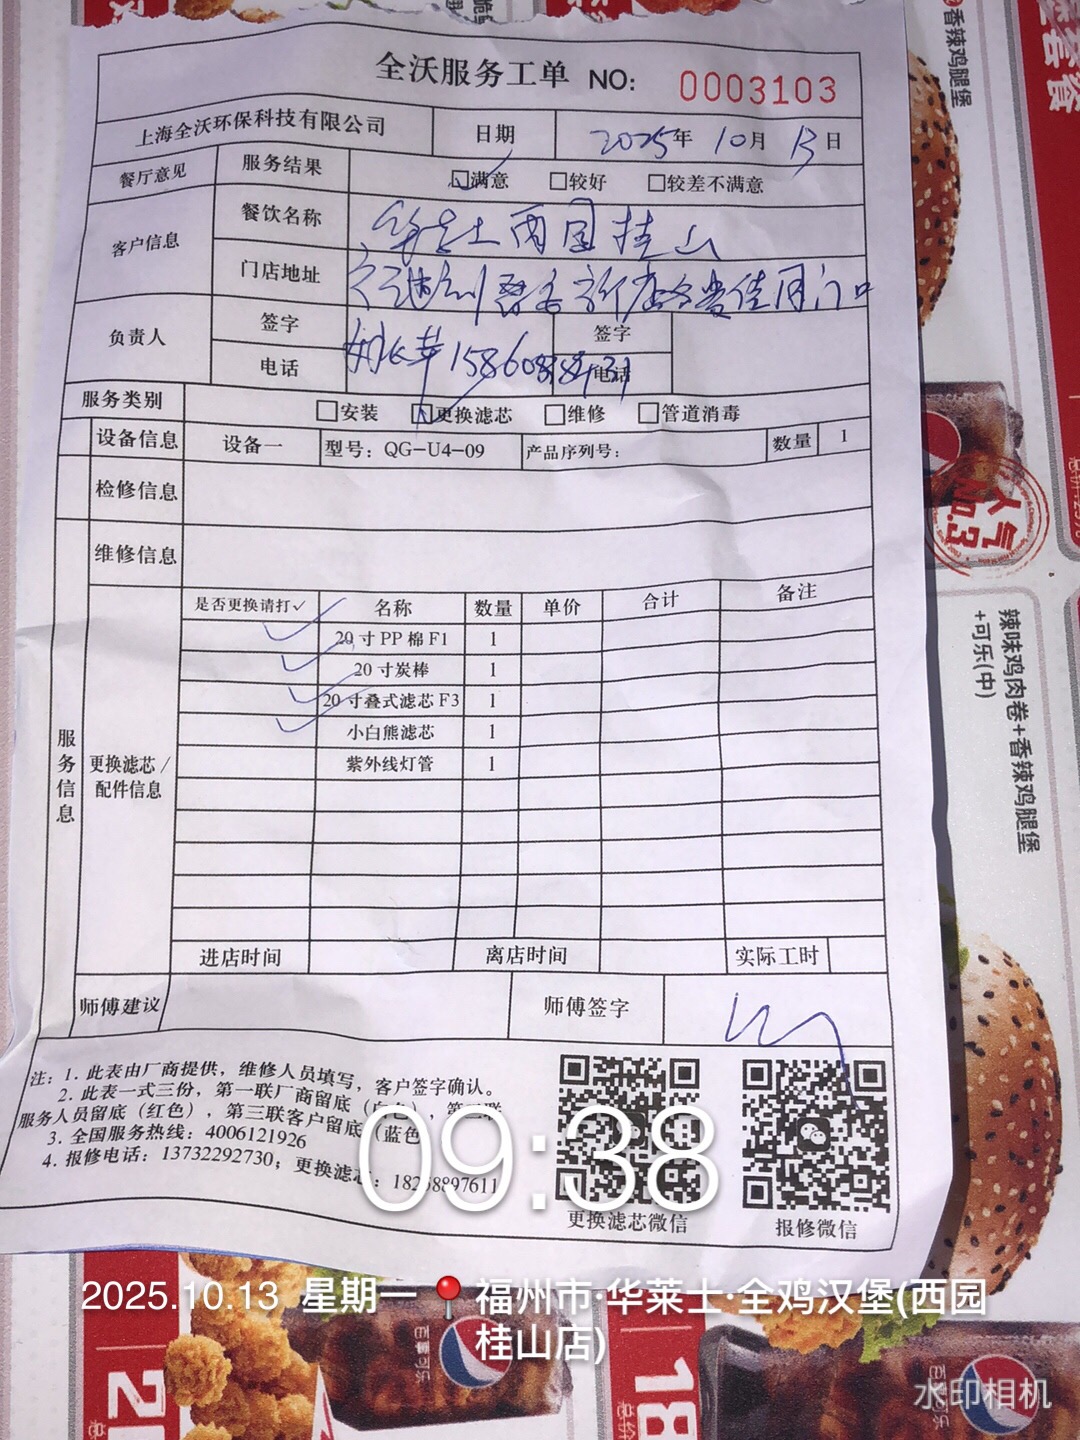 全沃服务工单 NO: 0003103
上海全沃环保科技有限公司 日期 2025年 10月 13日
餐厅意见 服务结果 ☑满意 □较好 □较差不满意
客户信息 餐饮名称 华莱士西园桂山
门店地址
负责人 签字 签字
电话 电话
服务类别 □安装 ☑更换滤芯 □维修 □管道消毒
设备信息 设备一 型号：QG-U4-09 产品序列号： 数量 1
检修信息
维修信息
是否更换请打✓ 名称 数量 单价 合计 备注
✓ 20寸PP棉F1 1
✓ 20寸炭棒 1
✓ 20寸叠式滤芯F3 1
✓ 小白熊滤芯 1
紫外线灯管 1
服务信息
更换滤芯/
配件信息
进店时间 离店时间 实际工时
师傅建议 师傅签字
注：1. 此表由厂商提供，维修人员填写，客户签字确认。
2. 此表一式三份，第一联厂商留底
服务人员留底（红色），第三联客户留底（蓝色
3. 全国服务热线：4006121926
4. 报修电话：13732292730；更换滤芯：
更换滤芯微信 报修微信
09:38
2025.10.13 星期一 福州市·华莱士·全鸡汉堡(西园
桂山店)
水印相机
香辣鸡腿堡
套餐
人气
No.3
辣味鸡肉卷+香辣鸡腿堡
+可乐(中)
百事可乐
百事可乐
18